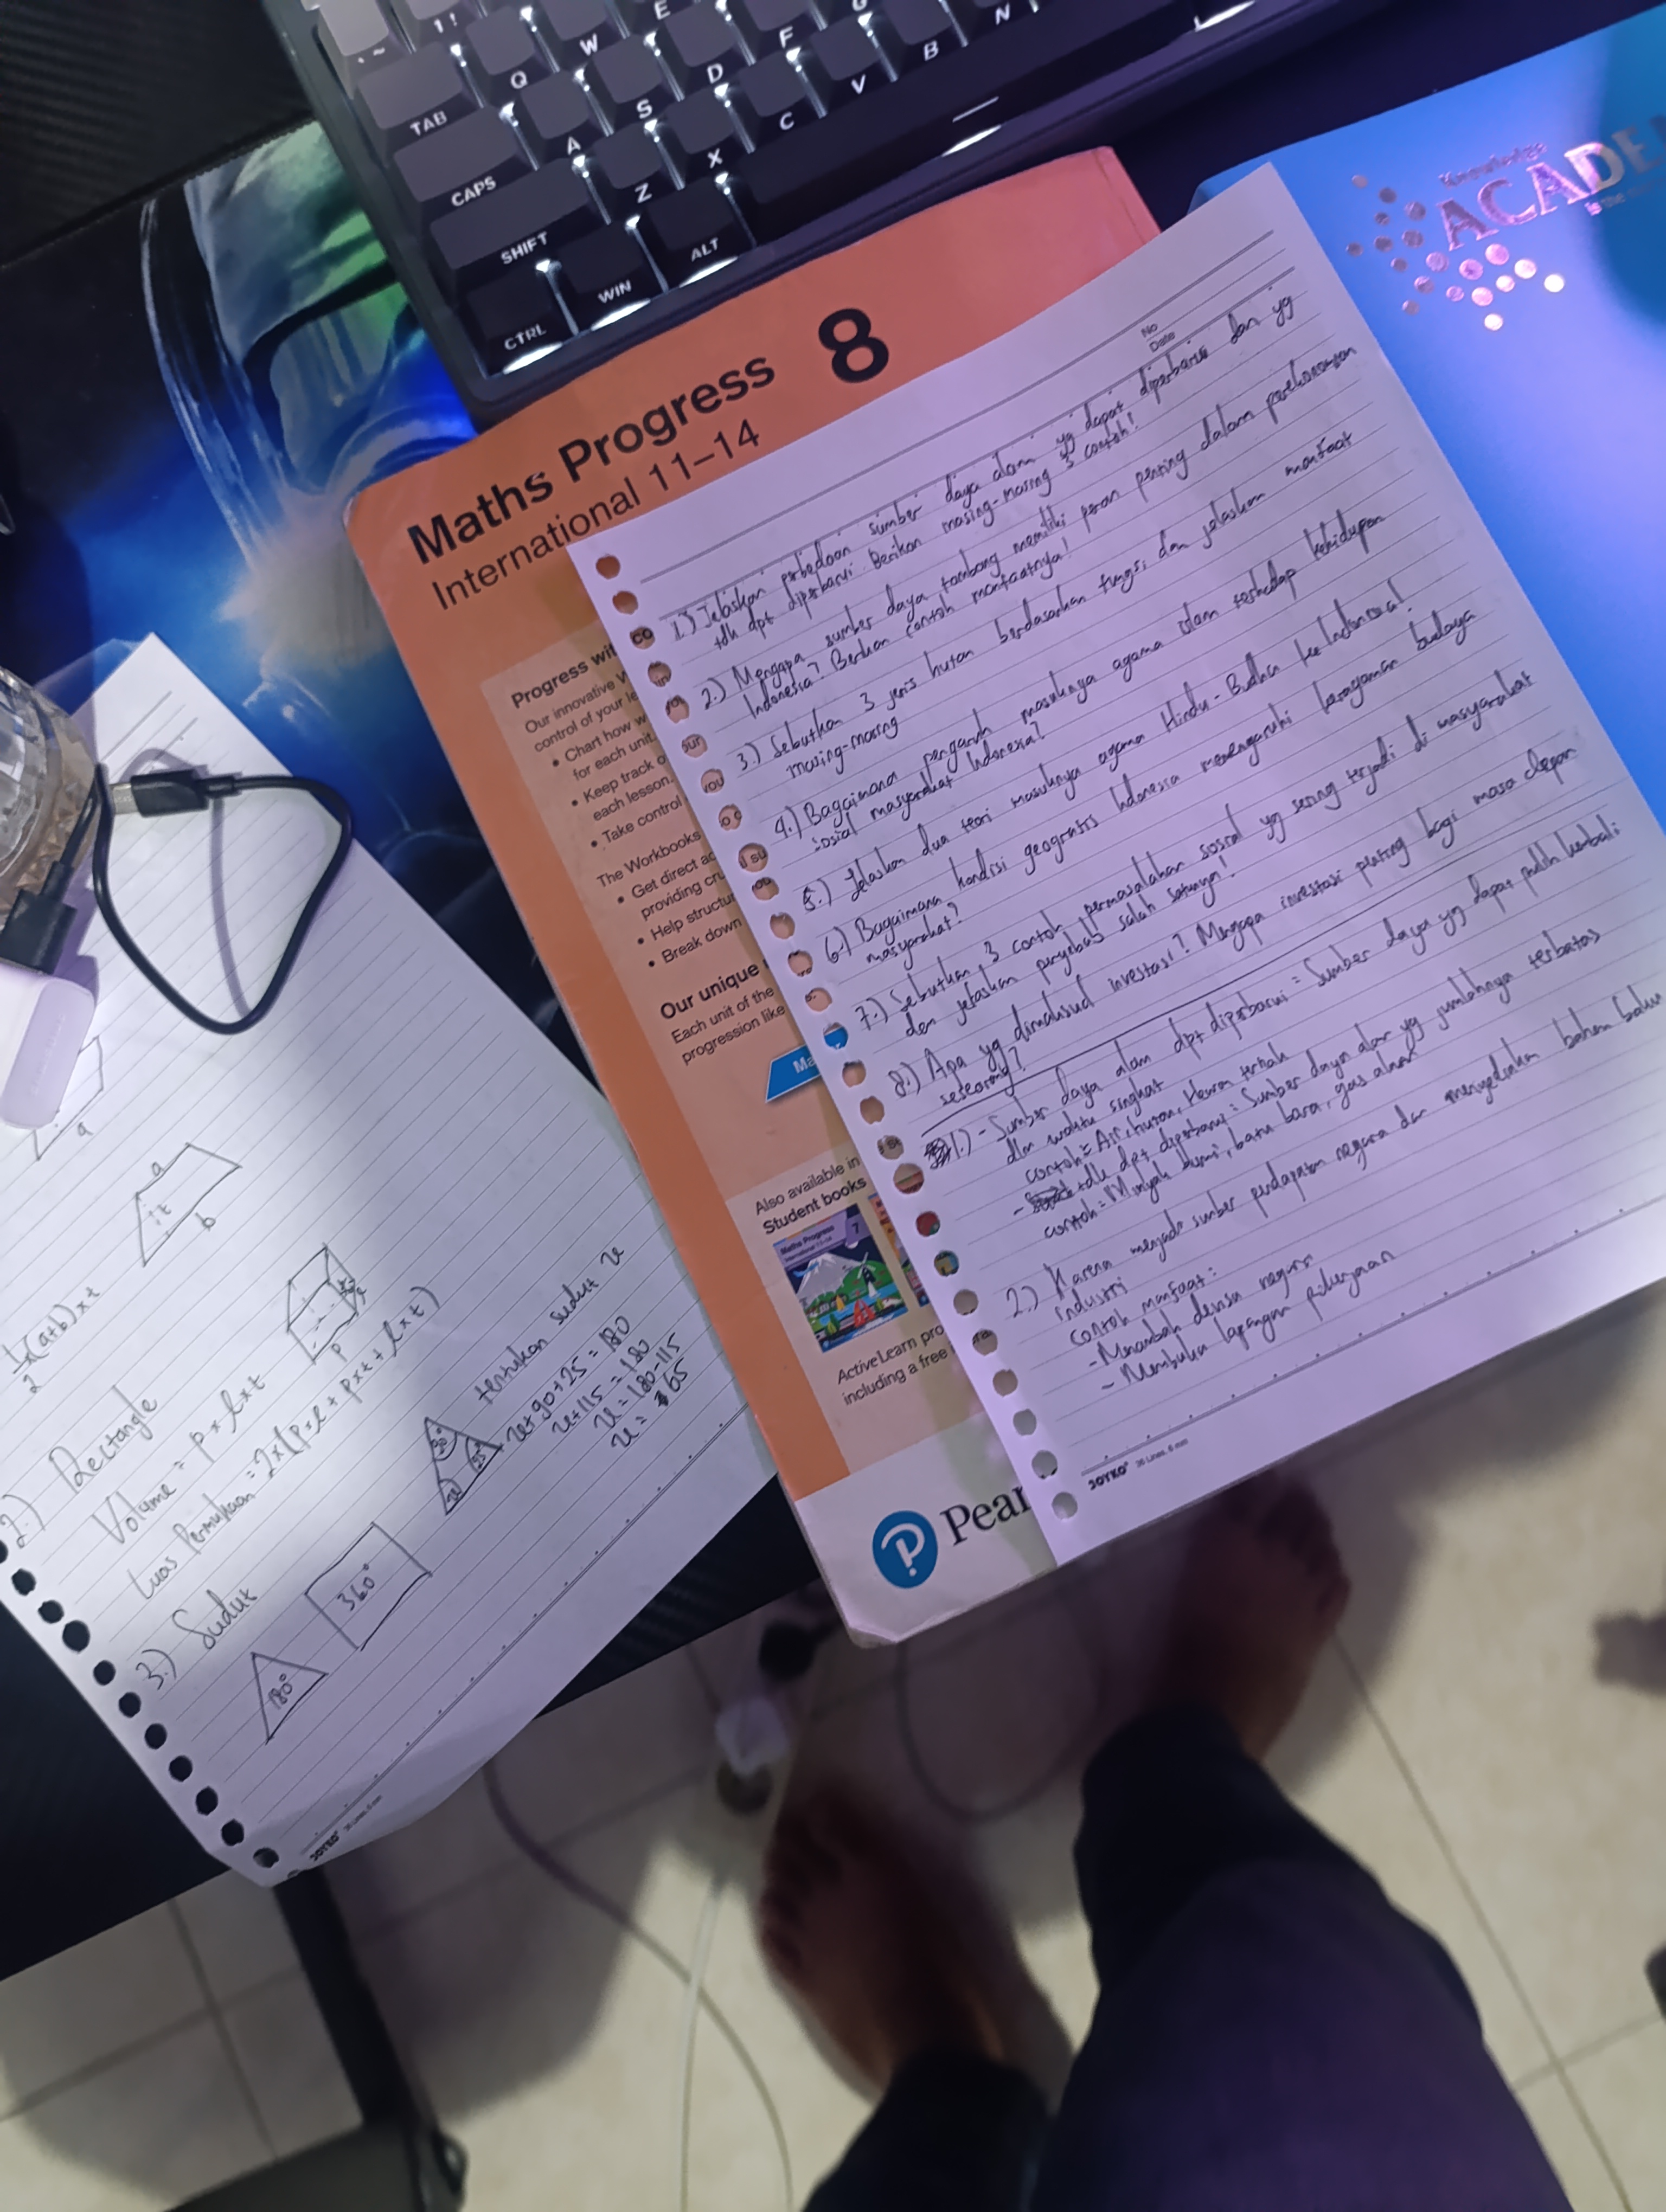 ~ 1! Q W E
TAB
CAPS A S D F G
SHIFT Z X C V B N
CTRL WIN ALT
Knowledge
ACADE
is the
Maths Progress 8
International 11–14
Progress wit
Our innovative
control of your le
• Chart how w
for each unit.
• Keep track o
each lesson.
• Take control
The Workbooks
• Get direct ac
providing cru
• Help structu
• Break down
Our unique
Each unit of the
progression like
Ma
Also available in
Student books
Maths Progress
International 11–14
7
ActiveLearn pro
including a free
Pear
No
Date
1.) Jelaskan perbedaan sumber daya alam yg dapat diperbarui dan yg
tdk dpt diperbarui. Berikan masing-masing 3 contoh!
2.) Mengapa sumber daya tambang memiliki peran penting dalam perekonomian
Indonesia? Berikan contoh manfaatnya!
3.) Sebutkan 3 jenis hutan berdasarkan fungsi dan jelaskan manfaat
masing-masing
4.) Bagaimana pengaruh masuknya agama islam terhadap kehidupan
sosial masyarakat Indonesia?
5.) Jelaskan dua teori masuknya agama Hindu-Budha ke Indonesia!
6.) Bagaimana kondisi geografis Indonesia mempengaruhi keragaman budaya
masyarakat?
7.) Sebutkan 3 contoh permasalahan sosial yg sering terjadi di masyarakat
dan jelaskan penyebab salah satunya!
8.) Apa yg dimaksud investasi? Mengapa investasi penting bagi masa depan
seseorang?
1.) - Sumber daya alam dpt diperbarui = Sumber daya yg dapat pulih kembali
dlm waktu singkat
contoh = Air, hutan, Hewan ternak
- tdk dpt diperbarui = Sumber daya alam yg jumlahnya terbatas
contoh = Minyak bumi, batu bara, gas alam
2.) Karena menjadi sumber pendapatan negara dan menyediakan bahan baku
industri
contoh manfaat:
- Menambah devisa negara
- Membuka lapangan pekerjaan
JOYKO 26 Lines, 8 mm
a
a
t
b
1/2 x(a+b) x t
2.) Rectangle
Volume = p x l x t
p
Luas Permukaan = 2x(p x l + p x t + l x t)
3.) Sudut
180°
360°
tentukan sudut x
90° 25° x
x+90+25 = 180
x+115 = 180
x = 180-115
x = 65
JOYKO